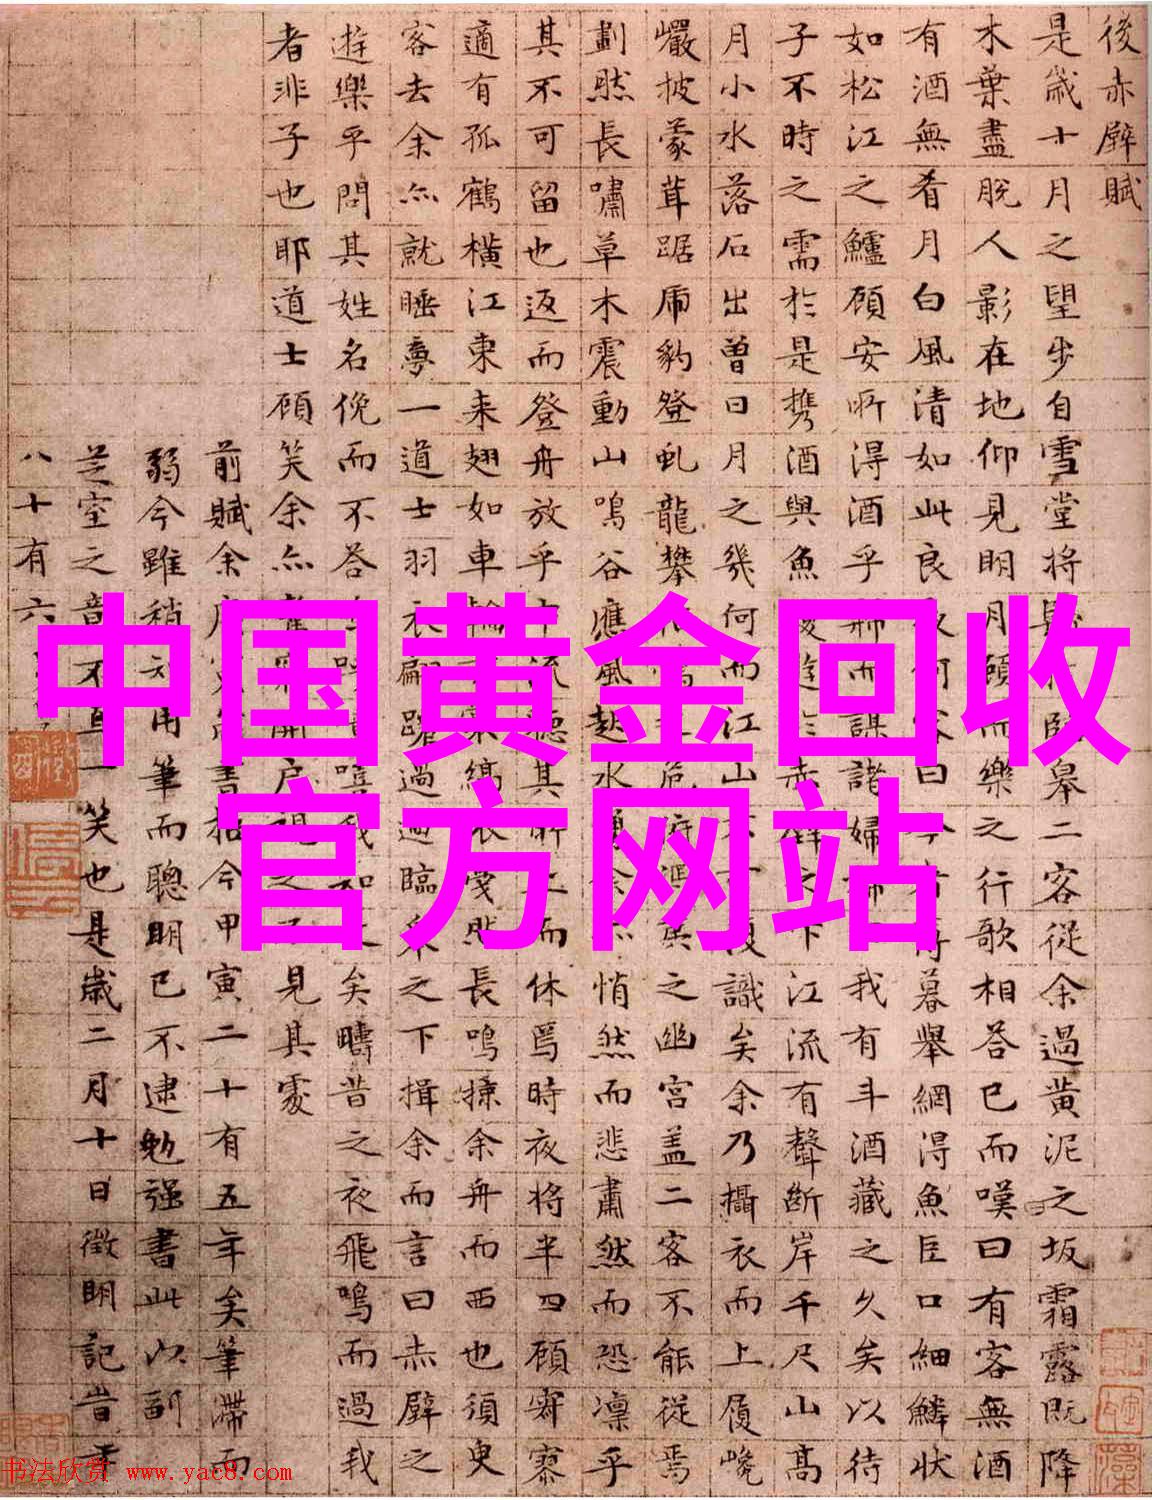 後赤壁賦
是歲十月之望步自雪堂將歸臨皋二客從余過黃泥之坂霜露既降
木葉盡脫人影在地仰見明月顧而樂之行歌相答已而嘆曰有客無酒
有酒無肴月白風清如此良夜何客曰今者薄暮舉網得魚巨口細鱗狀
如松江之鱸顧安所得酒乎歸而謀諸婦婦我有斗酒藏之久矣以待
子不時之需於是攜酒與魚復遊於赤壁之下江流有聲斷岸千尺山高
月小水落石出曾日月之幾何而江山不可復識矣余乃攝衣而上履巉
巖披蒙茸踞虎豹登虬龍攀危夷之幽宮蓋二客不能從焉
劃然長嘯草木震動山鳴谷應風起水涌余亦悄然而悲肅然而恐凜乎
其不可留也返而登舟放乎中流聽其所止而休焉時夜將半四顧寂寥
適有孤鶴橫江東來翅如車輪裳縞衣戛然長鳴掠余舟而西也須臾
客去余亦就睡夢一道士羽衣翩躚過臨皋之下揖余而言曰赤壁之
遊樂乎問其姓名俛而不答呼噫嘻我知之矣疇昔之夜飛鳴而過我
者非子也耶道士顧笑余亦開戶視之不見其處
前賦余書抵今甲寅二十有五年矣筆滯而
弱今雖稍知用筆而聰明已不逮勉強書此以副
芝室之意不直一笑也是歲二月十日徵明記昔年
八十有六
中国黄金回收
官方网站
书法欣赏 www.yac8.com